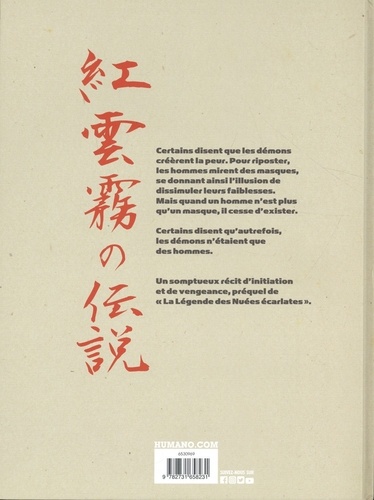 紅雲霧の伝説
Certains disent que les démons
créèrent la peur. Pour riposter,
les hommes mirent des masques,
se donnant ainsi l'illusion de
dissimuler leurs faiblesses.
Mais quand un homme n'est plus
qu'un masque, il cesse d'exister.
Certains disent qu'autrefois,
les démons n'étaient que
des hommes.
Un somptueux récit d'initiation
et de vengeance, préquel de
« La Légende des Nuées écarlates ».
HUMANO.COM
6530969
9782731658231
SUIVEZ-NOUS SUR